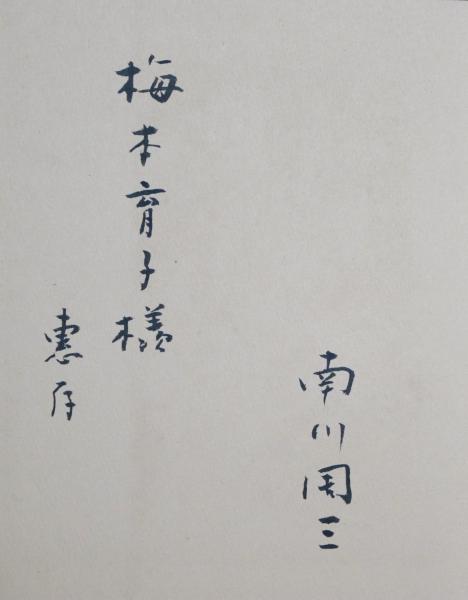 南川周三
梅本育子様
惠存